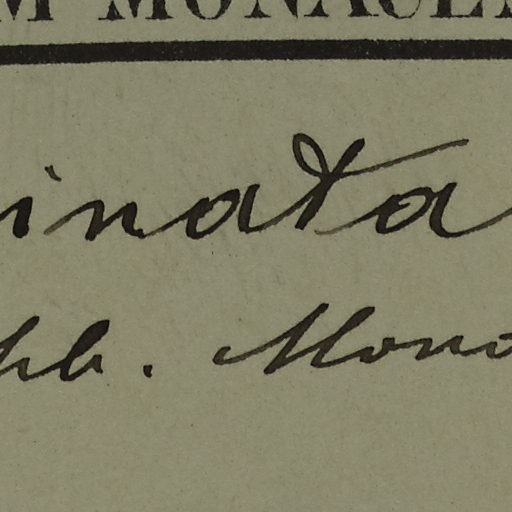 M MONACEN
inata
hb. Mona